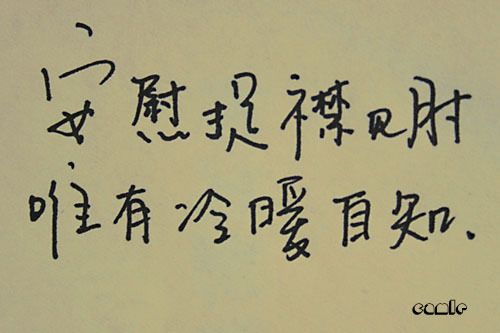 安慰提襟见肘
唯有冷暖自知.